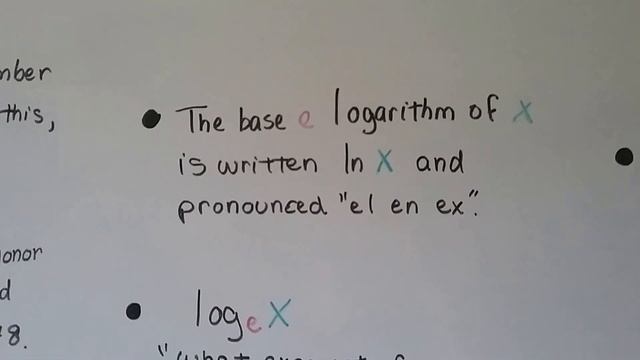 this,
The base e logarithm of x
is written ln x and
pronounced "el en ex".
d
8.
log e X
"what